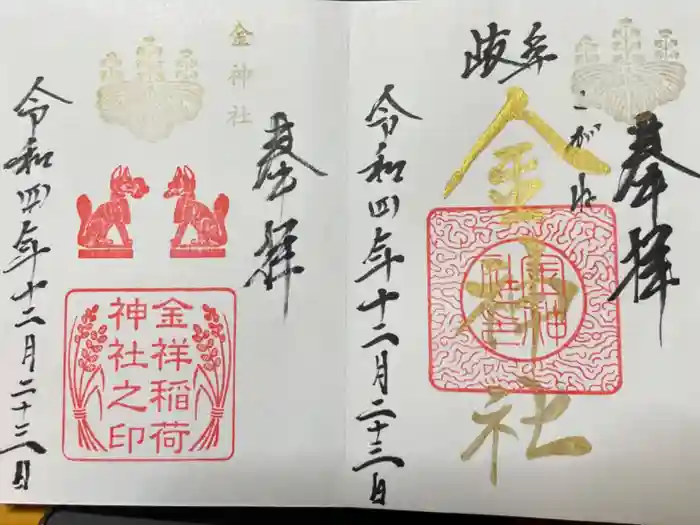 奉拝
岐阜
こがね
金神社
金神
社印
令和四年十二月二十三日
奉拝
金神社
金祥稲荷
神社之印
令和四年十二月二十三日